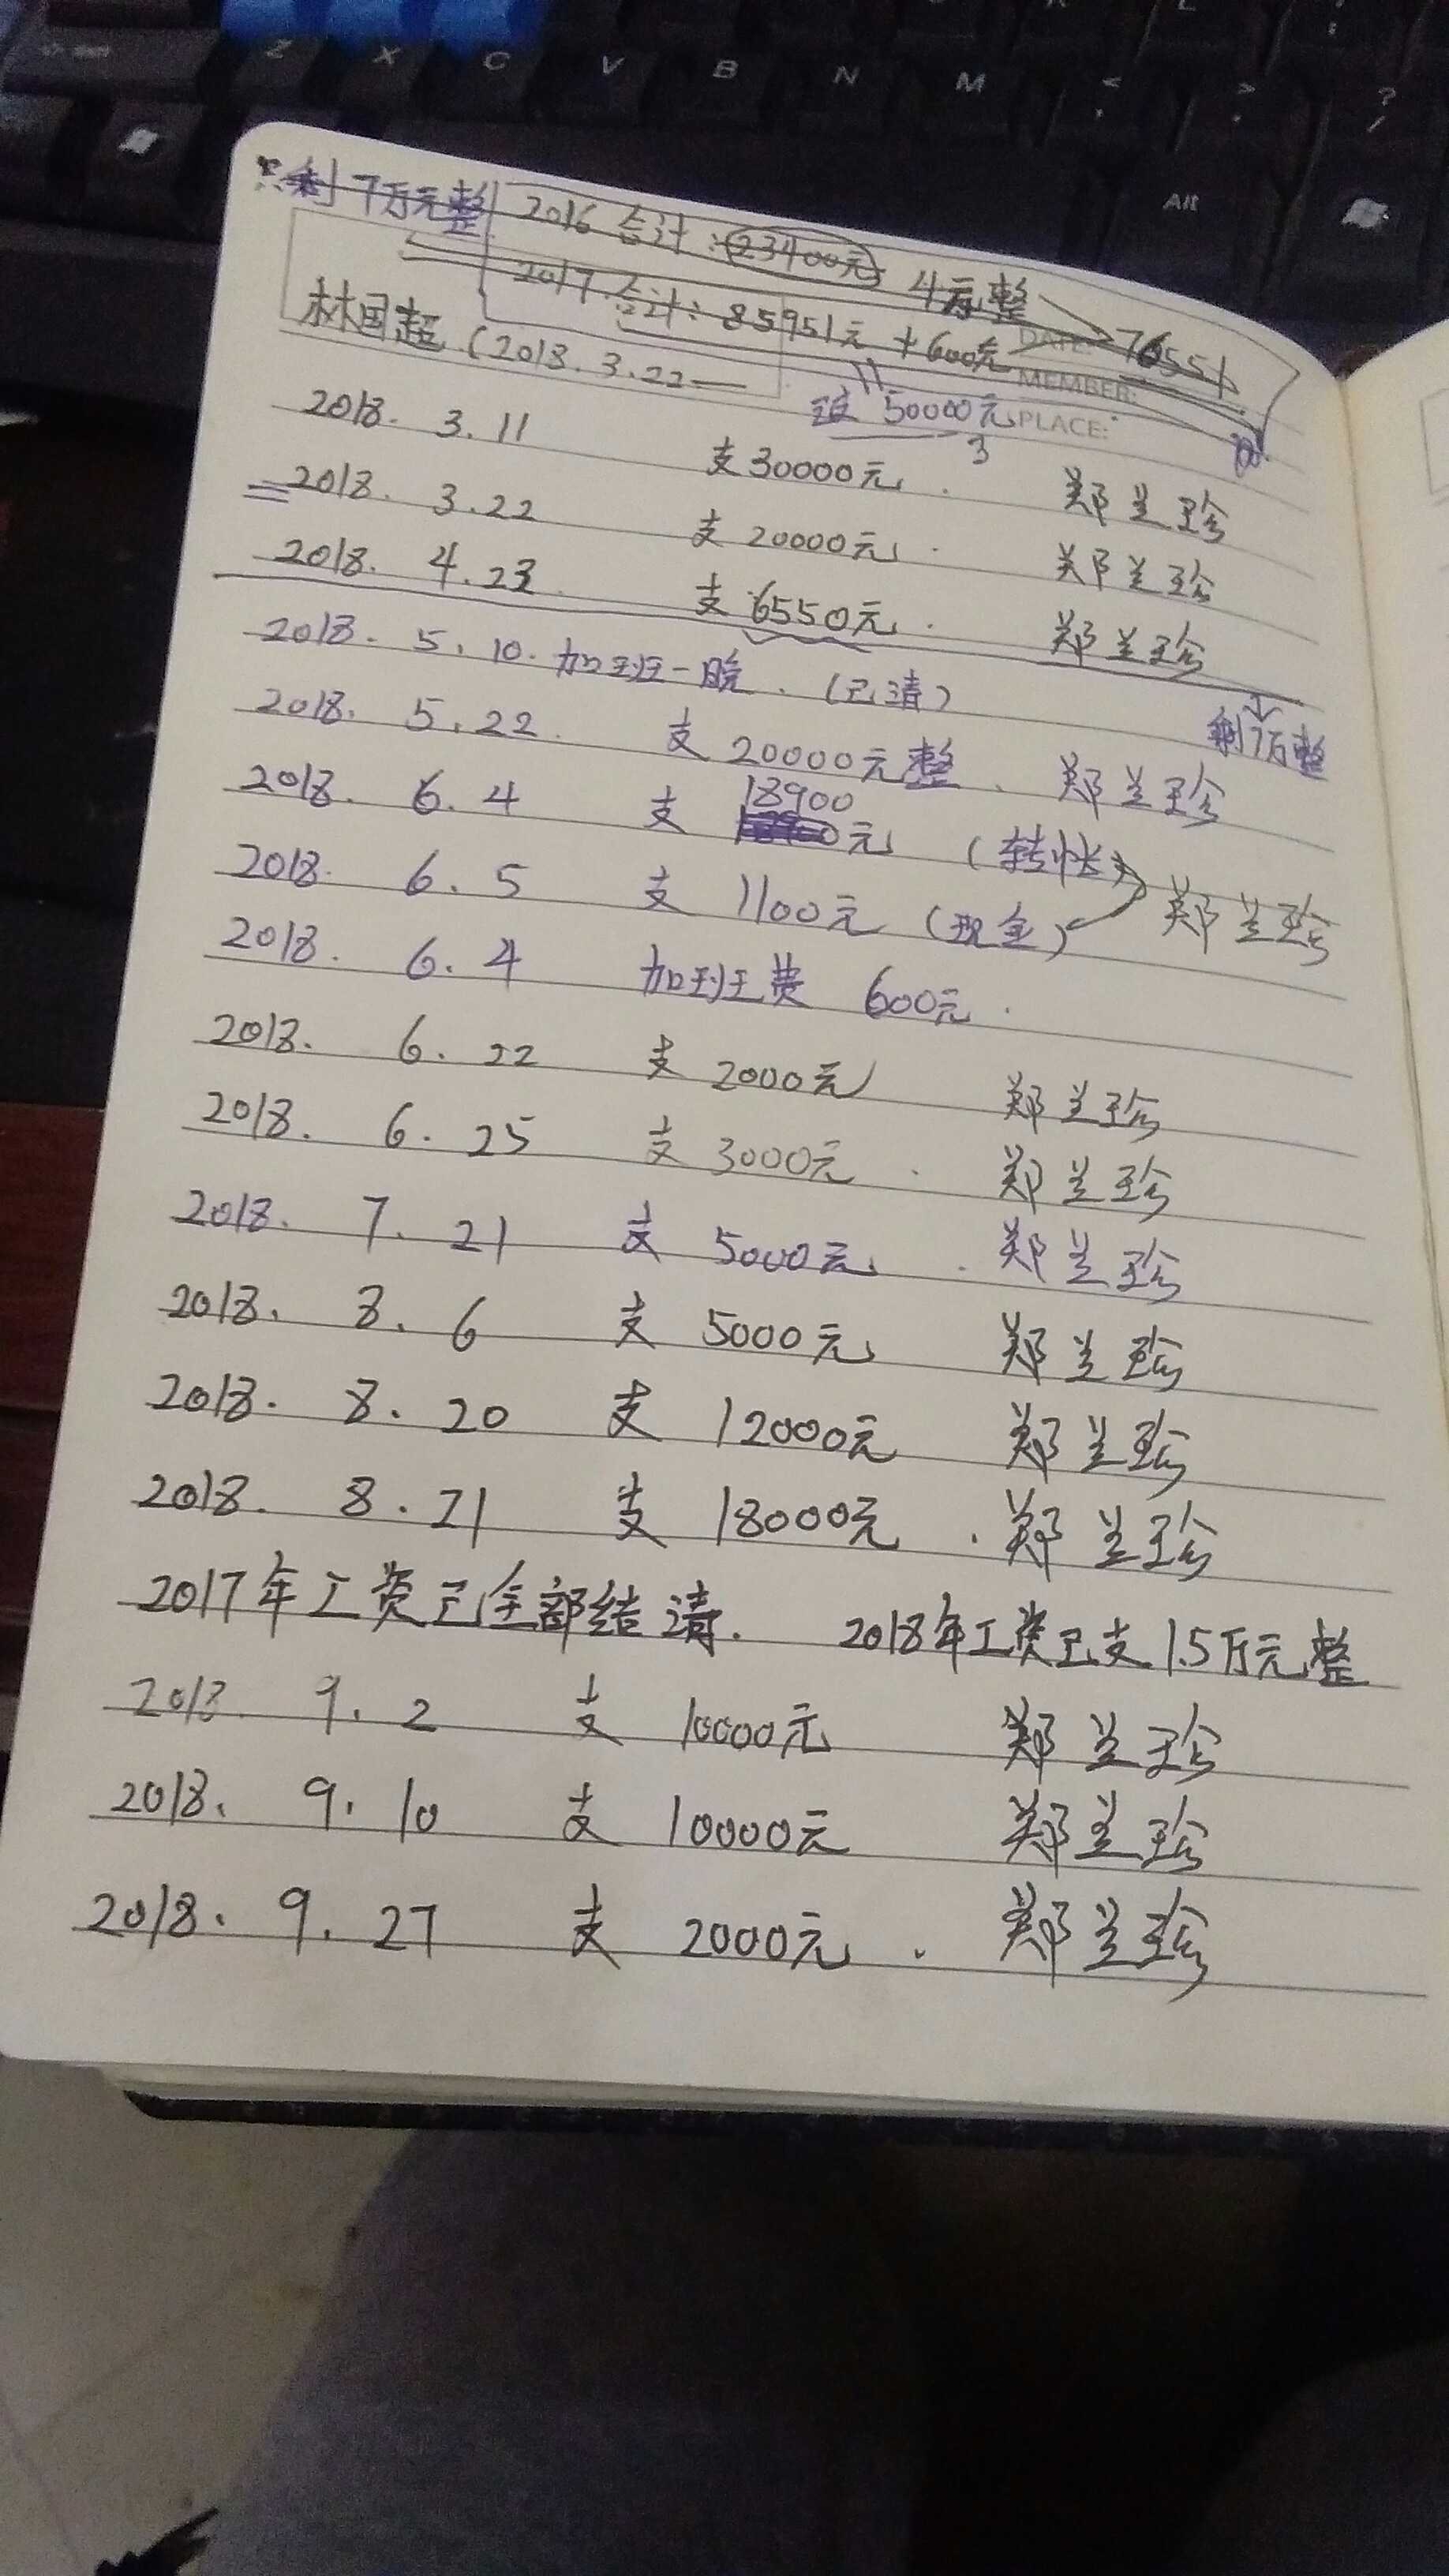 Z X C V B N M < , > . ? /
Alt
剩7万元整 2016 合计:23400元 4元整
2017合计:85951元+600元 76551
DATE:
林国超(2018.3.22—
MEMBER:
50000元 PLACE:
3
2018. 3.11 支30000元. 郑兰珍
2018. 3.22 支20000元. 郑兰珍
2018. 4.23 支6550元. 郑兰珍
2018. 5.10.加班一晚.(已清)
剩7万整
2018. 5.22. 支20000元整. 郑兰珍
2018. 6.4 支 18900元 (转帐)
2018. 6.5 支 1100元(现金) 郑兰珍
2018. 6.4 加班费 600元.
2018. 6.22 支2000元 郑兰珍
2018. 6.25 支3000元. 郑兰珍
2018. 7.21 支 5000元. 郑兰珍
2018. 8.6 支 5000元 郑兰珍
2018. 8.20 支 12000元 郑兰珍
2018. 8.21 支 18000元. 郑兰珍
2017年工资已全部结清. 2018年工资已支1.5万元整
2018 9.2 支 10000元 郑兰珍
2018. 9.10 支 10000元 郑兰珍
2018. 9.27 支 2000元. 郑兰珍